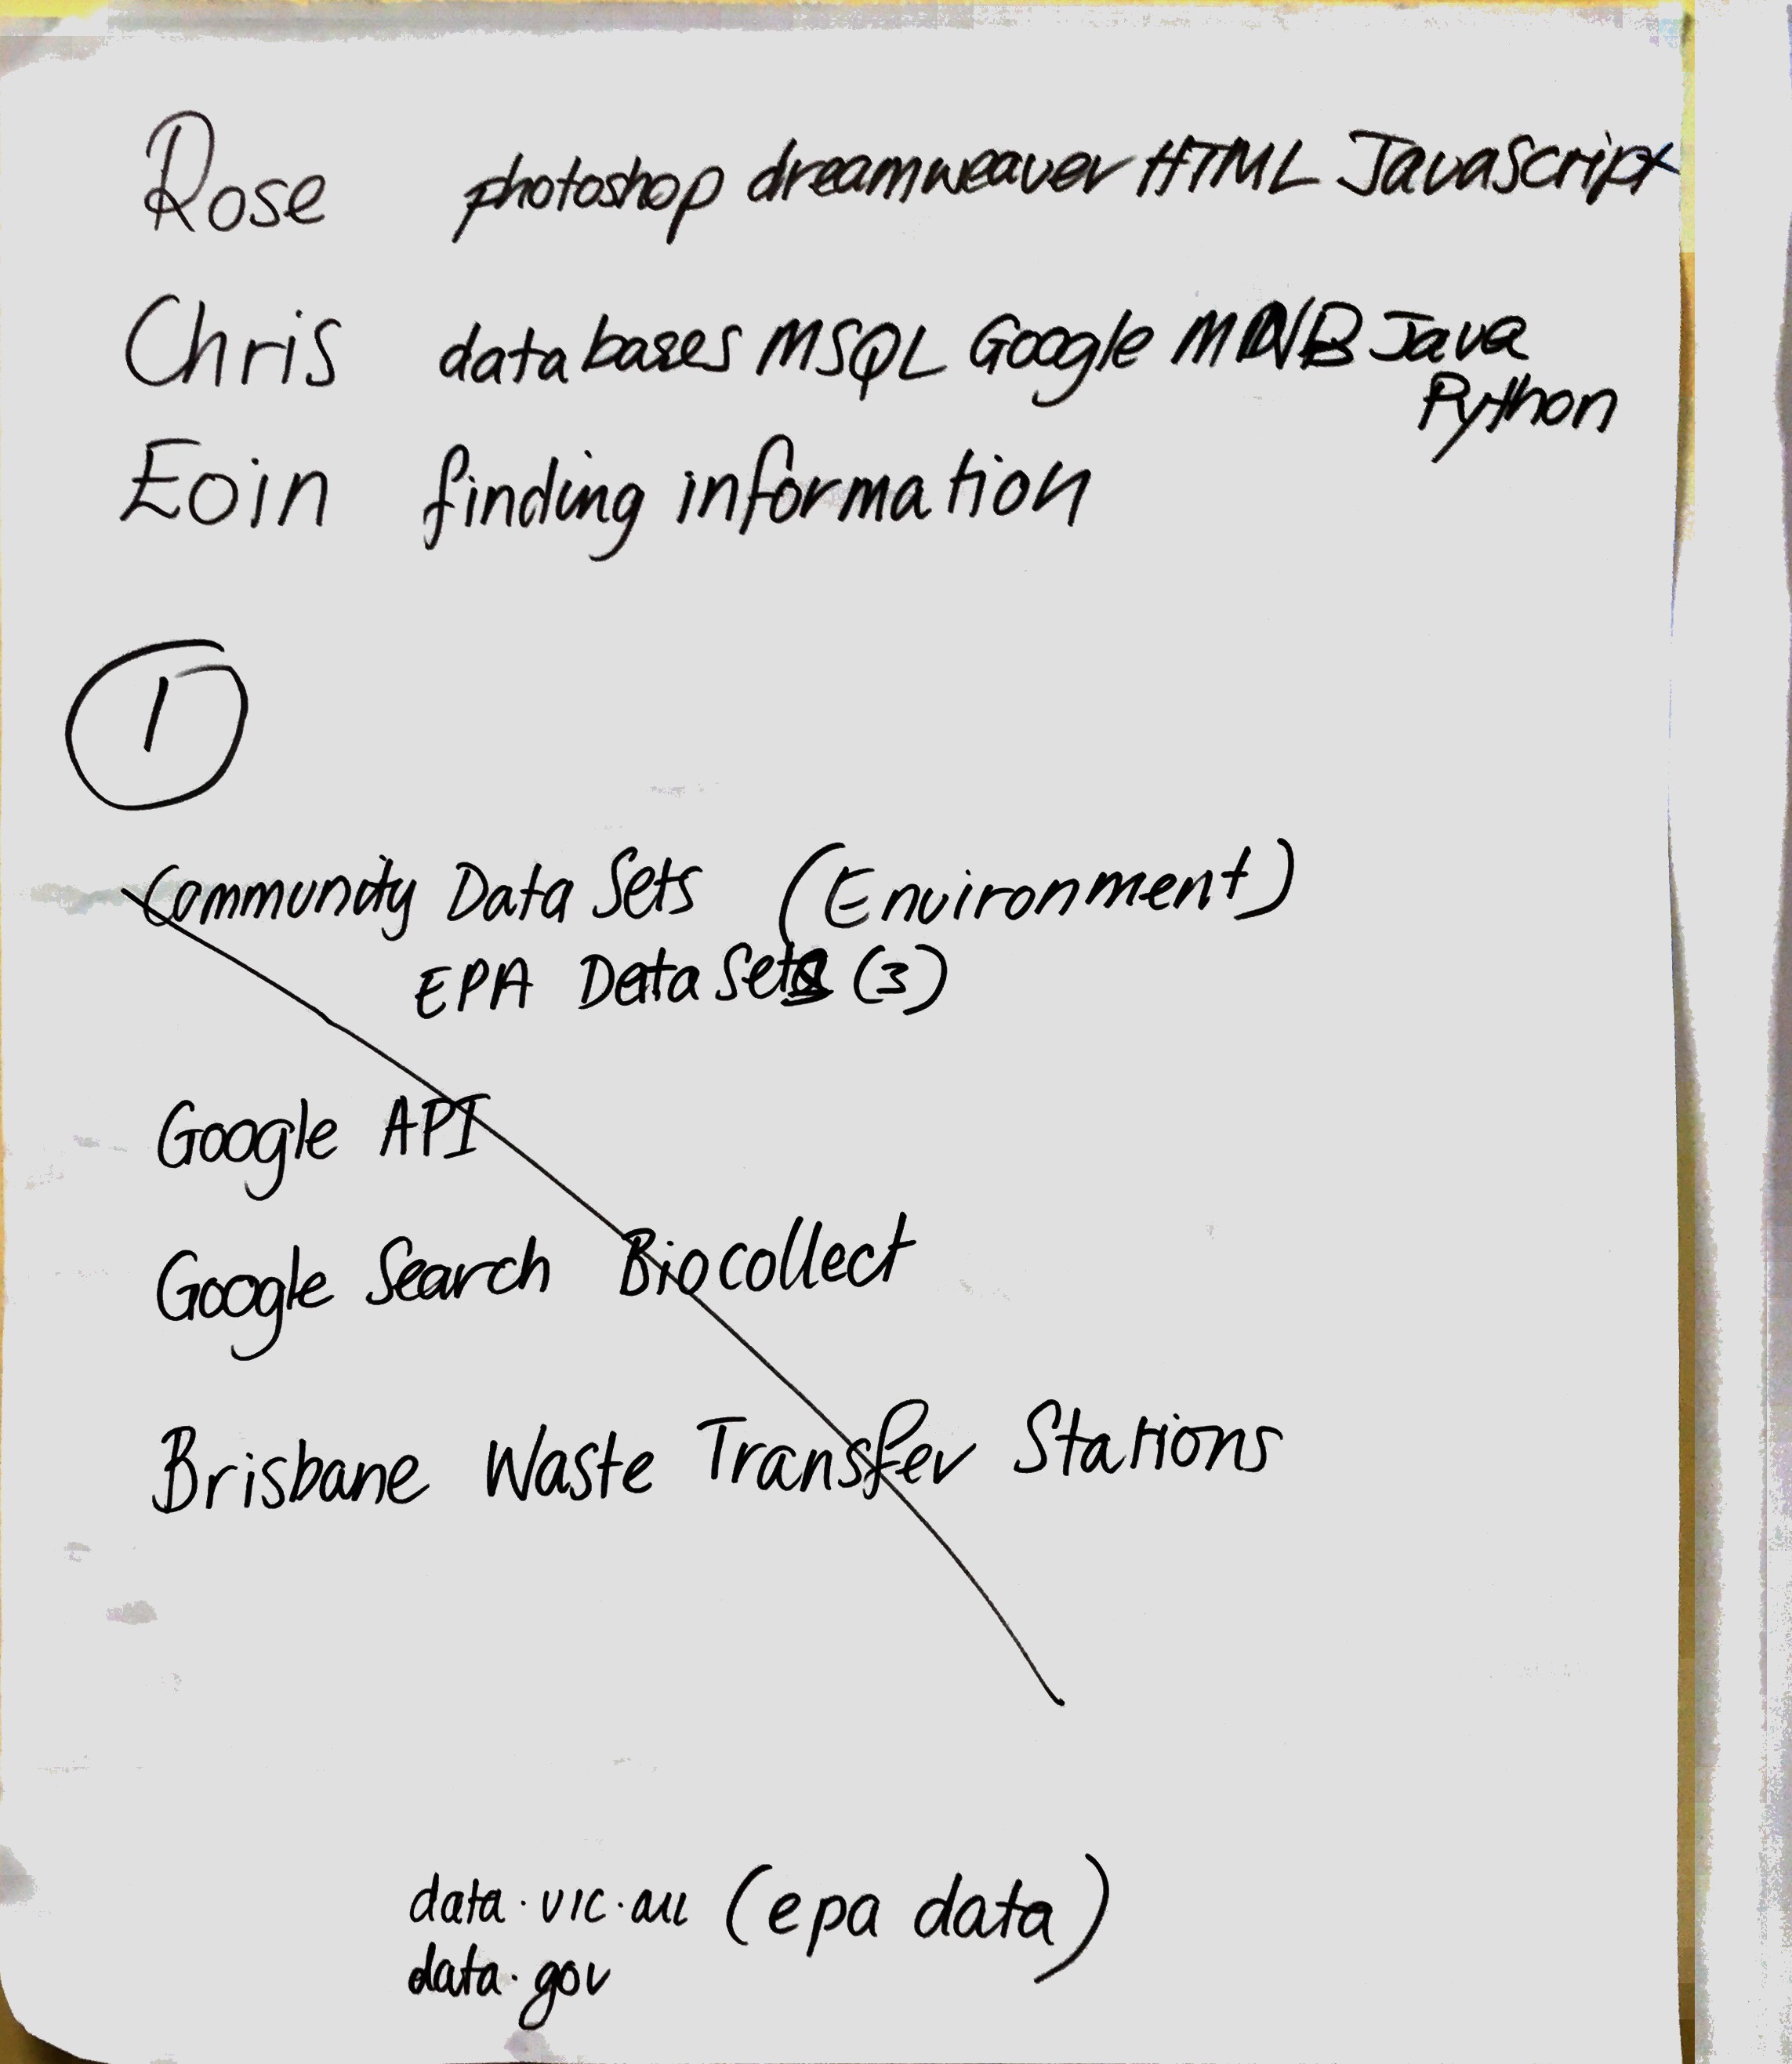 Rose photoshop dreamweaver HTML JavaScript
Chris databases MSQL Google Java
Python
Eoin finding information
1
Community Data Sets (Environment)
EPA Data Sets (3)
Google API
Google Search Biocollect
Brisbane Waste Transfer Stations
data.vic.au (epa data)
data.gov